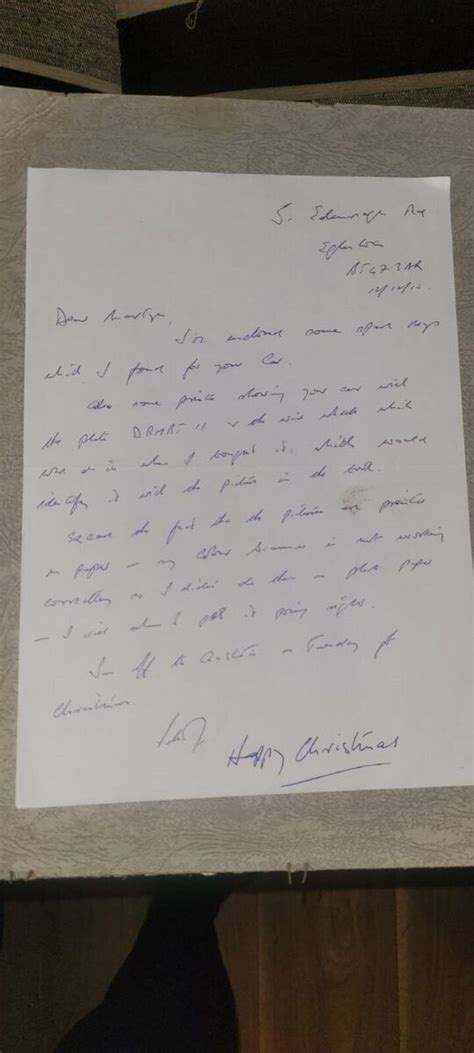 Dear Martyn,
I've enclosed some spare keys
which I found for your car.
Also some prints showing your car with
the plate & the wire wheels which
were on it when I bought it, which would
identify it with the picture in the book.
Excuse the fact that the pictures are printed
on paper – my colour scanner is not working
correctly so I didn't do them on photo paper
– I will when I get it going right.
I'm off to on Tuesday for
Christmas
Happy Christmas